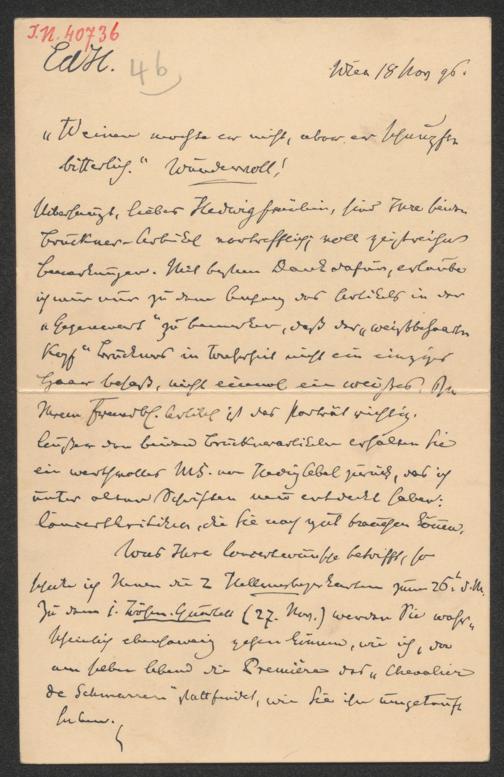 I.N. 40736
EdH. 46
Wien 18 Nov 96.
„Weinen mochte er nicht, aber er schnupfte
bitterlich." Wundervoll!
Überhaupt, liebes Hedwigfräulein, sind Ihre beiden
Bruckner-Artikel vortrefflich, voll geistreicher
Bemerkungen. Mit bestem Dank dafür, erlaube
ich mir nur zu dem Anfang des Artikels in der
„Gegenwart" zu bemerken, daß der „weißbehaarte
Kopf" Bruckners in Wahrheit nicht ein einziges
Haar besaß, nicht einmal ein weißes. In
Ihrem Artikel ist das Porträt richtig.
Außer den beiden Brucknerartikeln erhalten Sie
ein werthvolles MS. von zurück, das ich
unter alten Schriften neu entdeckt habe:
Concertkritiken, die Sie noch gut brauchen können.
Was Ihre Concertwünsche betrifft, so
sende ich Ihnen die 2 Kellnerbeyerkarten zum 26t. d. M.
Zu dem I. Böhm. Quartett (27. Nov.) werden Sie wahr-
scheinlich ebensowenig gehen können, wie ich, da
am selben Abend die Première des „Chevalier
de Schmarren" stattfindet, wie Sie ihn umgetauft
haben.